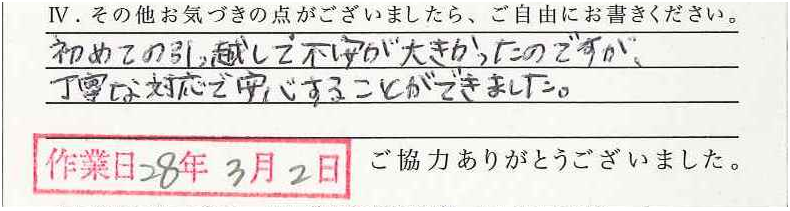 Ⅳ．その他お気づきの点がございましたら、ご自由にお書きください。
初めての引っ越しで不安が大きかったのですが、
丁寧な対応で安心することができました。
作業日28年3月2日 ご協力ありがとうございました。